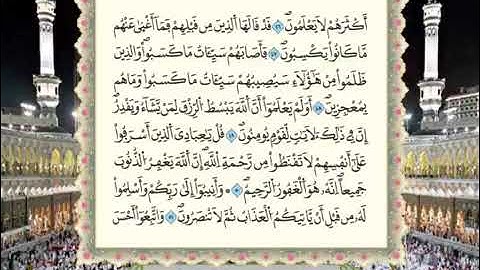 أَكْثَرَهُمْ لَا يَعْلَمُونَ ۝٤٦ قَدْ قَالَهَا الَّذِينَ مِن قَبْلِهِمْ فَمَا أَغْنَىٰ عَنْهُم
مَّا كَانُوا يَكْسِبُونَ ۝٤٧ فَأَصَابَهُمْ سَيِّئَاتُ مَا كَسَبُوا وَالَّذِينَ
ظَلَمُوا مِنْ هَٰؤُلَاءِ سَيُصِيبُهُمْ سَيِّئَاتُ مَا كَسَبُوا وَمَا هُم
بِمُعْجِزِينَ ۝٤٨ أَوَلَمْ يَعْلَمُوا أَنَّ اللَّهَ يَبْسُطُ الرِّزْقَ لِمَن يَشَاءُ وَيَقْدِرُ
إِنَّ فِي ذَٰلِكَ لَآيَاتٍ لِّقَوْمٍ يُؤْمِنُونَ ۝٤٩ قُلْ يَا عِبَادِيَ الَّذِينَ أَسْرَفُوا
عَلَىٰ أَنفُسِهِمْ لَا تَقْنَطُوا مِن رَّحْمَةِ اللَّهِ إِنَّ اللَّهَ يَغْفِرُ الذُّنُوبَ
جَمِيعًا إِنَّهُ هُوَ الْغَفُورُ الرَّحِيمُ ۝٥٠ وَأَنِيبُوا إِلَىٰ رَبِّكُمْ وَأَسْلِمُوا
لَهُ مِن قَبْلِ أَن يَأْتِيَكُمُ الْعَذَابُ ثُمَّ لَا تُنصَرُونَ ۝٥١ وَاتَّبِعُوا أَحْسَنَ